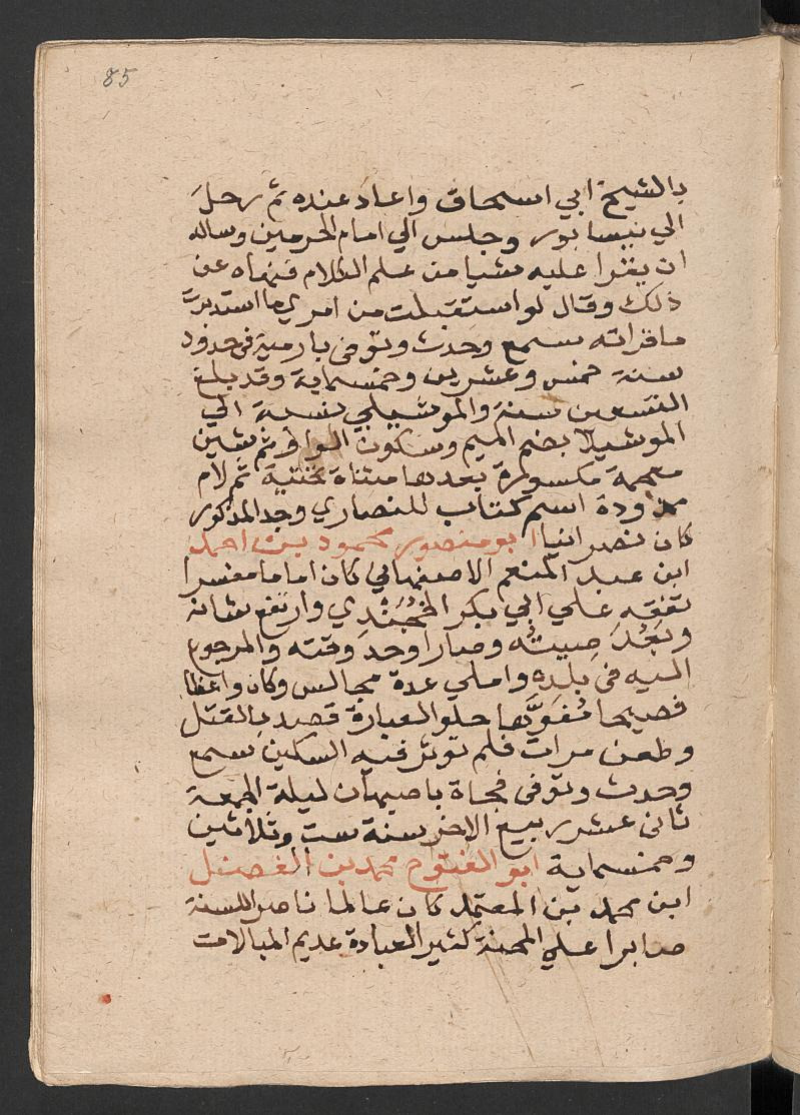 85
بالشيخ ابي اسحاق واعاد عنده ثم رحل
الي نيسابور وجلس الي امام الحرمين وساله
ان يقرا عليه شيا من علم الكلام فنهاه عن
ذلك وقال لو استقبلت من امري ما استدبرت
ما قراته سمع وحدث وتوفى بارمية فى حدود
سنة خمس وعشرين وخمسماية وقد بلغ
التسعين سنة والموشيلي نسبة الي
الموشيلا بضم الميم وسكون الواو ثم شين
معجمة مكسورة بعدها مثناة تحتية ثم لام
ممدودة اسم كتاب للنصاري وجد المذكور
كان نصرانيا ابو منصور محمود بن احمد
ابن عبد المنعم الاصفهاني كان اماما مفسرا
تفقه علي ابي بكر الخُجَنْدِي وارتفع شانه
وبَعُدَ صِيتُه وصار اوحد وقته والمرجوع
اليه فى بلده واملي عدة مجالس وكان واعظا
فصيحا مُفَوَّها حلو العبارة قصد بالقتل
وطعن مرات فلم توثر فيه السكين سمع
وحدث وتوفى فجاة باصبهان ليلة الجمعة
ثانى عشر ربيع الاخر سنة ست وثلاثين
وخمسماية ابو الفتوح محمد بن الفضل
ابن محمد بن المعتمد كان عالما ناصرا للسنة
صابرا علي المحنة كثير العبادة عديم المبالات